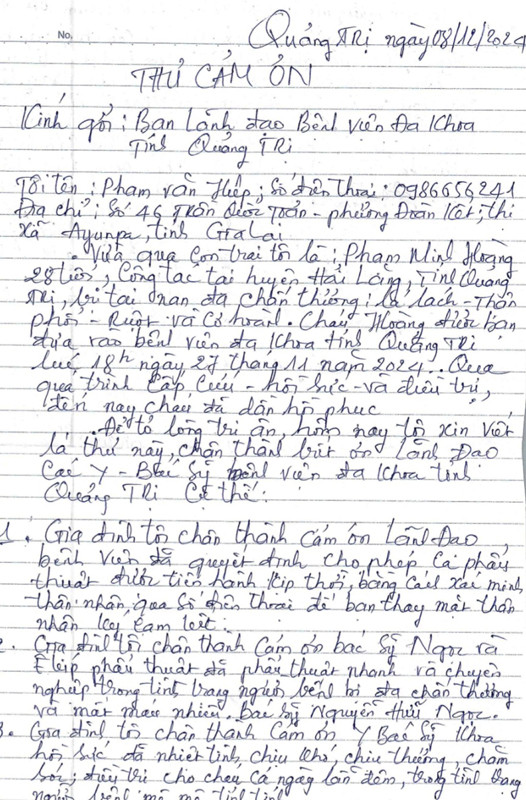 No.
Quảng Trị ngày 08/12/2024
THƯ CẢM ƠN
Kính gởi: Ban Lãnh đạo Bệnh viện Đa Khoa
Tỉnh Quảng Trị
Tôi tên: Phạm văn Hiếp; Số điện thoại: 0986656241
Địa chỉ: Số 46 Trần Quốc Toản - phường Đoàn Kết, thị
xã Ayunpa, tỉnh Gia Lai
. Vừa qua con trai tôi là: Phạm Minh Hoàng
28 tuổi, công tác tại huyện Hải Lăng, Tỉnh Quảng
Trị, bị tai nạn đa chấn thương: lá lách - Thận
phổi - Ruột và cơ hoành. Cháu Hoàng được bạn
đưa vào bệnh viện đa khoa tỉnh Quảng Trị
lúc 18h ngày 27 tháng 11 năm 2024. Qua
quá trình cấp cứu - hồi sức - và điều trị,
đến nay cháu đã dần hồi phục
. Để tỏ lòng tri ân, hôm nay tôi xin viết
lá thư này, chân thành biết ơn Lãnh Đạo
Các Y - Bác Sỹ bệnh viện đa khoa tỉnh
Quảng Trị cụ thể:
1. Gia đình tôi chân thành cám ơn Lãnh Đạo
bệnh viện đã quyết định cho phép ca phẫu
thuật được tiến hành kịp thời, bằng cách xác minh
thân nhân, qua số điện thoại để bạn thay mặt thân
nhân ký cam kết.
2. Gia đình tôi chân thành cám ơn bác sỹ Ngọc và
Ekip phẫu thuật đã phẫu thuật nhanh và chuyên
nghiệp trong tình trạng người bệnh bị đa chấn thương
và mất máu nhiều. bác sỹ Nguyễn Hữu Ngọc.
3. Gia đình tôi chân thành cám ơn Y Bác Sỹ khoa
hồi sức đã nhiệt tình, chịu khó, chịu thương, chăm
sóc; điều trị cho cháu cả ngày lẫn đêm, trong tình trạng
người bệnh mê mê tỉnh tỉnh